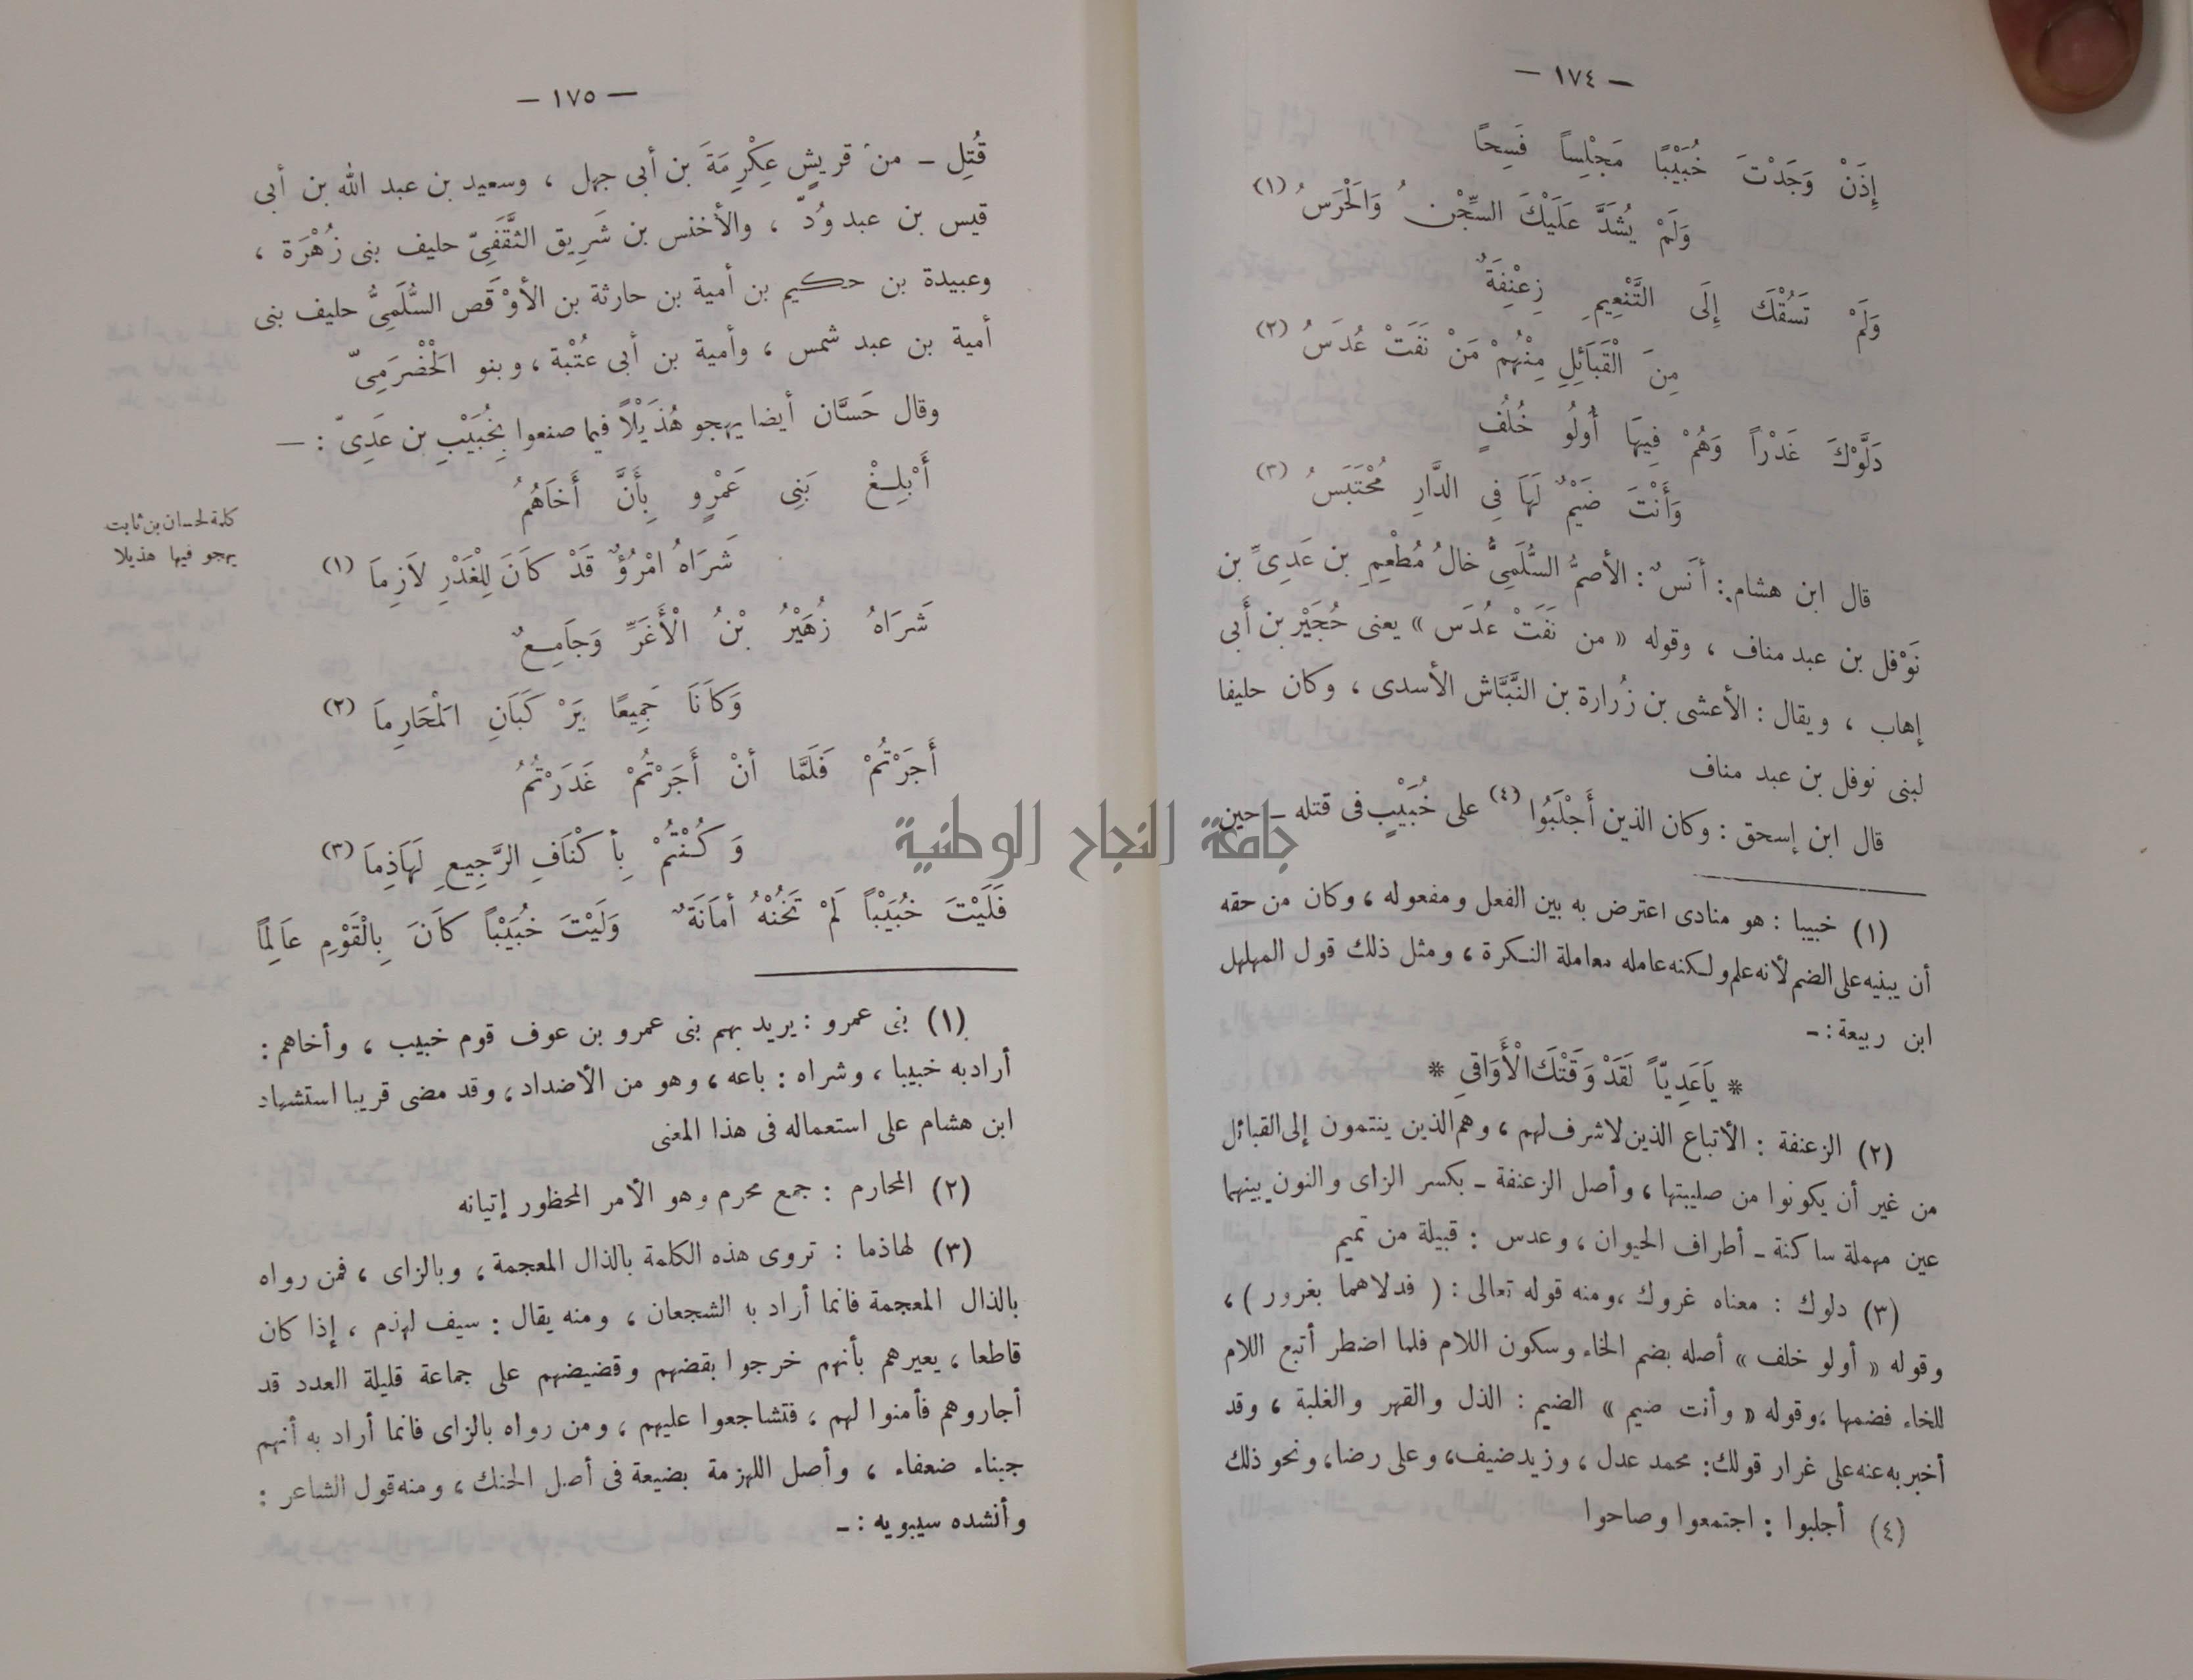 — ١٧٤ —
إِذَنْ وَجَدْتَ خُبَيْبًا مَجْلِسِاً فَسِحًا
وَلَمْ يُشَدَّ عَلَيْكَ السِّجْنُ وَالْحَرَسُ (١)
وَلَمْ تَسُقْكَ إِلَى التَّنْعِيمِ زِعْنِفَةٌ
مِنَ الْقَبَائِلِ مِنْهُمْ مَنْ نَفَتْ عُدَسُ (٢)
دَلَّوْكَ غَدْراً وَهُمْ فِيهَا أُولُو خُلُفٍ
وَأَنْتَ ضَيْمٌ لَهَا فِى الدَّارِ مُحْتَبَسُ (٣)
قال ابن هشام: أنَسٌ: الأصمُّ السُّلَمِىُّ خالُ مُطْعِمِ بن عَدِىِّ بن
نَوْفل بن عبد مناف ، وقوله « من نَفَتْ عُدَس » يعنى حُجَيْر بن أبى
إهاب ، ويقال : الأعشى بن زُرارة بن النَّبَّاش الأسدى ، وكان حليفا
لبنى نوفل بن عبد مناف
قال ابن إسحق : وكان الذين أَجْلَبُوا (٤) على خُبَيْبٍ فى قتله ـ حين
(١) خبيبا : هو منادى اعترض به بين الفعل ومفعوله ، وكان من حقه
أن يبنيه على الضم لأنه علم ولكنه عامله معاملة النكرة ، ومثل ذلك قول المهلهل
ابن ربيعة : ـ
* يَاعَدِيّاً لَقَدْ وَقَتْكَ الْأَوَاقِى *
(٢) الزعنفة : الأتباع الذين لاشرف لهم ، وهم الذين ينتمون إلى القبائل
من غير أن يكونوا من صليبتها ، وأصل الزعنفة ـ بكسر الزاى والنون بينهما
عين مهملة ساكنة ـ أطراف الحيوان ، وعدس : قبيلة من تميم
(٣) دلوك : معناه غروك ، ومنه قوله تعالى : ( فدلاهما بغرور ) ،
وقوله « أولو خلف » أصله بضم الخاء وسكون اللام فلما اضطر أتبع اللام
للخاء فضمها ، وقوله « وأنت ضيم » الضيم : الذل والقهر والغلبة ، وقد
أخبر به عنه على غرار قولك : محمد عدل ، وزيد ضيف ، وعلى رضا ، ونحو ذلك
(٤) أجلبوا : اجتمعوا وصاحوا
— ١٧٥ —
قُتِلِ ـ من قريشٍ عِكْرِمَةَ بن أبى جهل ، وسعيد بن عبد الله بن أبى
قيس بن عبد وُدّ ، والأخنس بن شَرِيق الثَّقَفِىّ حليف بنى زُهْرَة ،
وعبيدة بن حكيم بن أمية بن حارثة بن الأوْقَص السُّلَمِىُّ حليف بنى
أمية بن عبد شمس ، وأمية بن أبى عُتْبة ، وبنو الْحَضْرَمِىّ
وقال حَسَّان أيضا يهجو هُذَيْلاً فيما صنعوا بِخُبَيْبِ بن عَدِىّ : —
كلمة لحسان بن ثابت
يهجو فيها هذيلا
أَبْلِغْ بَنِى عَمْرٍو بِأَنَّ أَخَاهُمُ
شَرَاهُ امْرُؤٌ قَدْ كَانَ لِلْغَدْرِ لَازِمَا (١)
شَرَاهُ زُهَيْرُ بْنُ الْأَغَرِّ وَجَامِعٌ
وَكَانَا جَمِيعًا يَرْكَبَانِ الْمَحَارِمَا (٢)
أَجَرْتُمْ فَلَمَّا أنْ أَجَرْتُمْ غَدَرْتُمُ
وَكُنْتُمْ بِأَكْنَافِ الرَّجِيعِ لَهَاذِمَا (٣)
فَلَيْتَ خُبَيْبًا لَمْ تَخُنْهُ أمَانَةٌ وَلَيْتَ خُبَيْباً كَانَ بِالْقَوْمِ عَالِمَاً
(١) بنى عمرو : يريد بهم بنى عمرو بن عوف قوم خبيب ، وأخاهم :
أراد به خبيبا ، وشراه : باعه ، وهو من الأضداد ، وقد مضى قريبا استشهاد
ابن هشام على استعماله فى هذا المعنى
(٢) المحارم : جمع محرم وهو الأمر المحظور إتيانه
(٣) لهاذما : تروى هذه الكلمة بالذال المعجمة ، وبالزاى ، فمن رواه
بالذال المعجمة فانما أراد به الشجعان ، ومنه يقال : سيف لهذم ، إذا كان
قاطعا ، يعيرهم بأنهم خرجوا بقضهم وقضيضهم على جماعة قليلة العدد قد
أجاروهم فأمنوا لهم ، فتشاجعوا عليهم ، ومن رواه بالزاى فانما أراد به أنهم
جبناء ضعفاء ، وأصل اللهزمة بضيعة فى أصل الحنك ، ومنه قول الشاعر :
وأنشده سيبويه : ـ
جامعة النجاح الوطنية